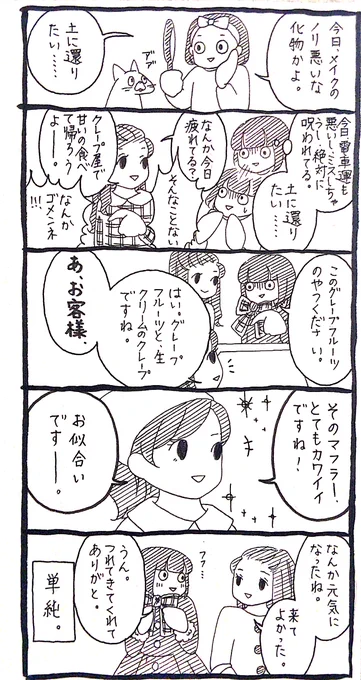 今日、メイクの
ノリ悪いな
化物かよ。
土に還り
たい……
ブブ
今日電車運も
悪いし、ミスしちゃ
うし、絶対に
呪われてる。
土に還り
たい……
なんか今日
疲れてる？
そんなことない
クレープ屋で
甘いの食べ
て帰ろう
よー。
なんか
ゴメンネ
このグレープフルーツ
のやつください。
はい。グレープ
フルーツと、生
クリームのクレープ
ですね。
あ、お客様、
そのマフラー、
とてもカワイイ
ですね！
お似合い
ですー。
なんか元気に
なったね。
来て
よかった。
フフ…
うん。
つれてきてくれて
ありがと。
単純。